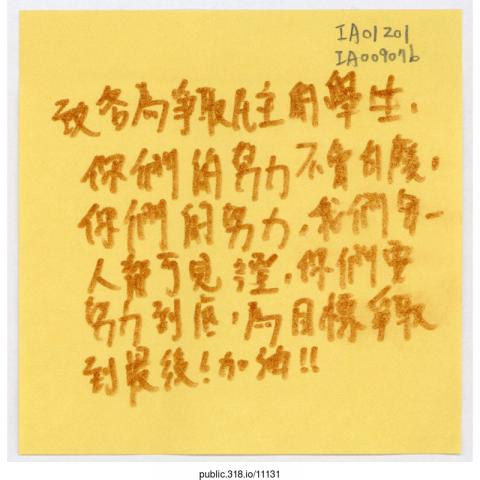 IA01201
IA009076
致各為爭取民主的學生,
你們的努力不會白廢,
你們的努力,我們每一
人都可見證,你們要
努力到底,為目標爭取
到最後!加油!!
public.318.io/11131